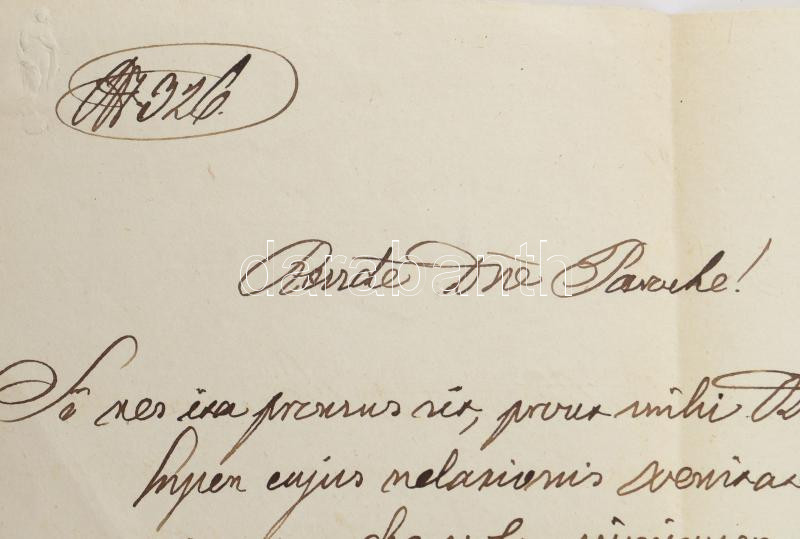 № 326.
Rsvrde Dne Paroche!
Si res ita prorsus sit, prout mihi
super cujus relationis veritat
darabanth